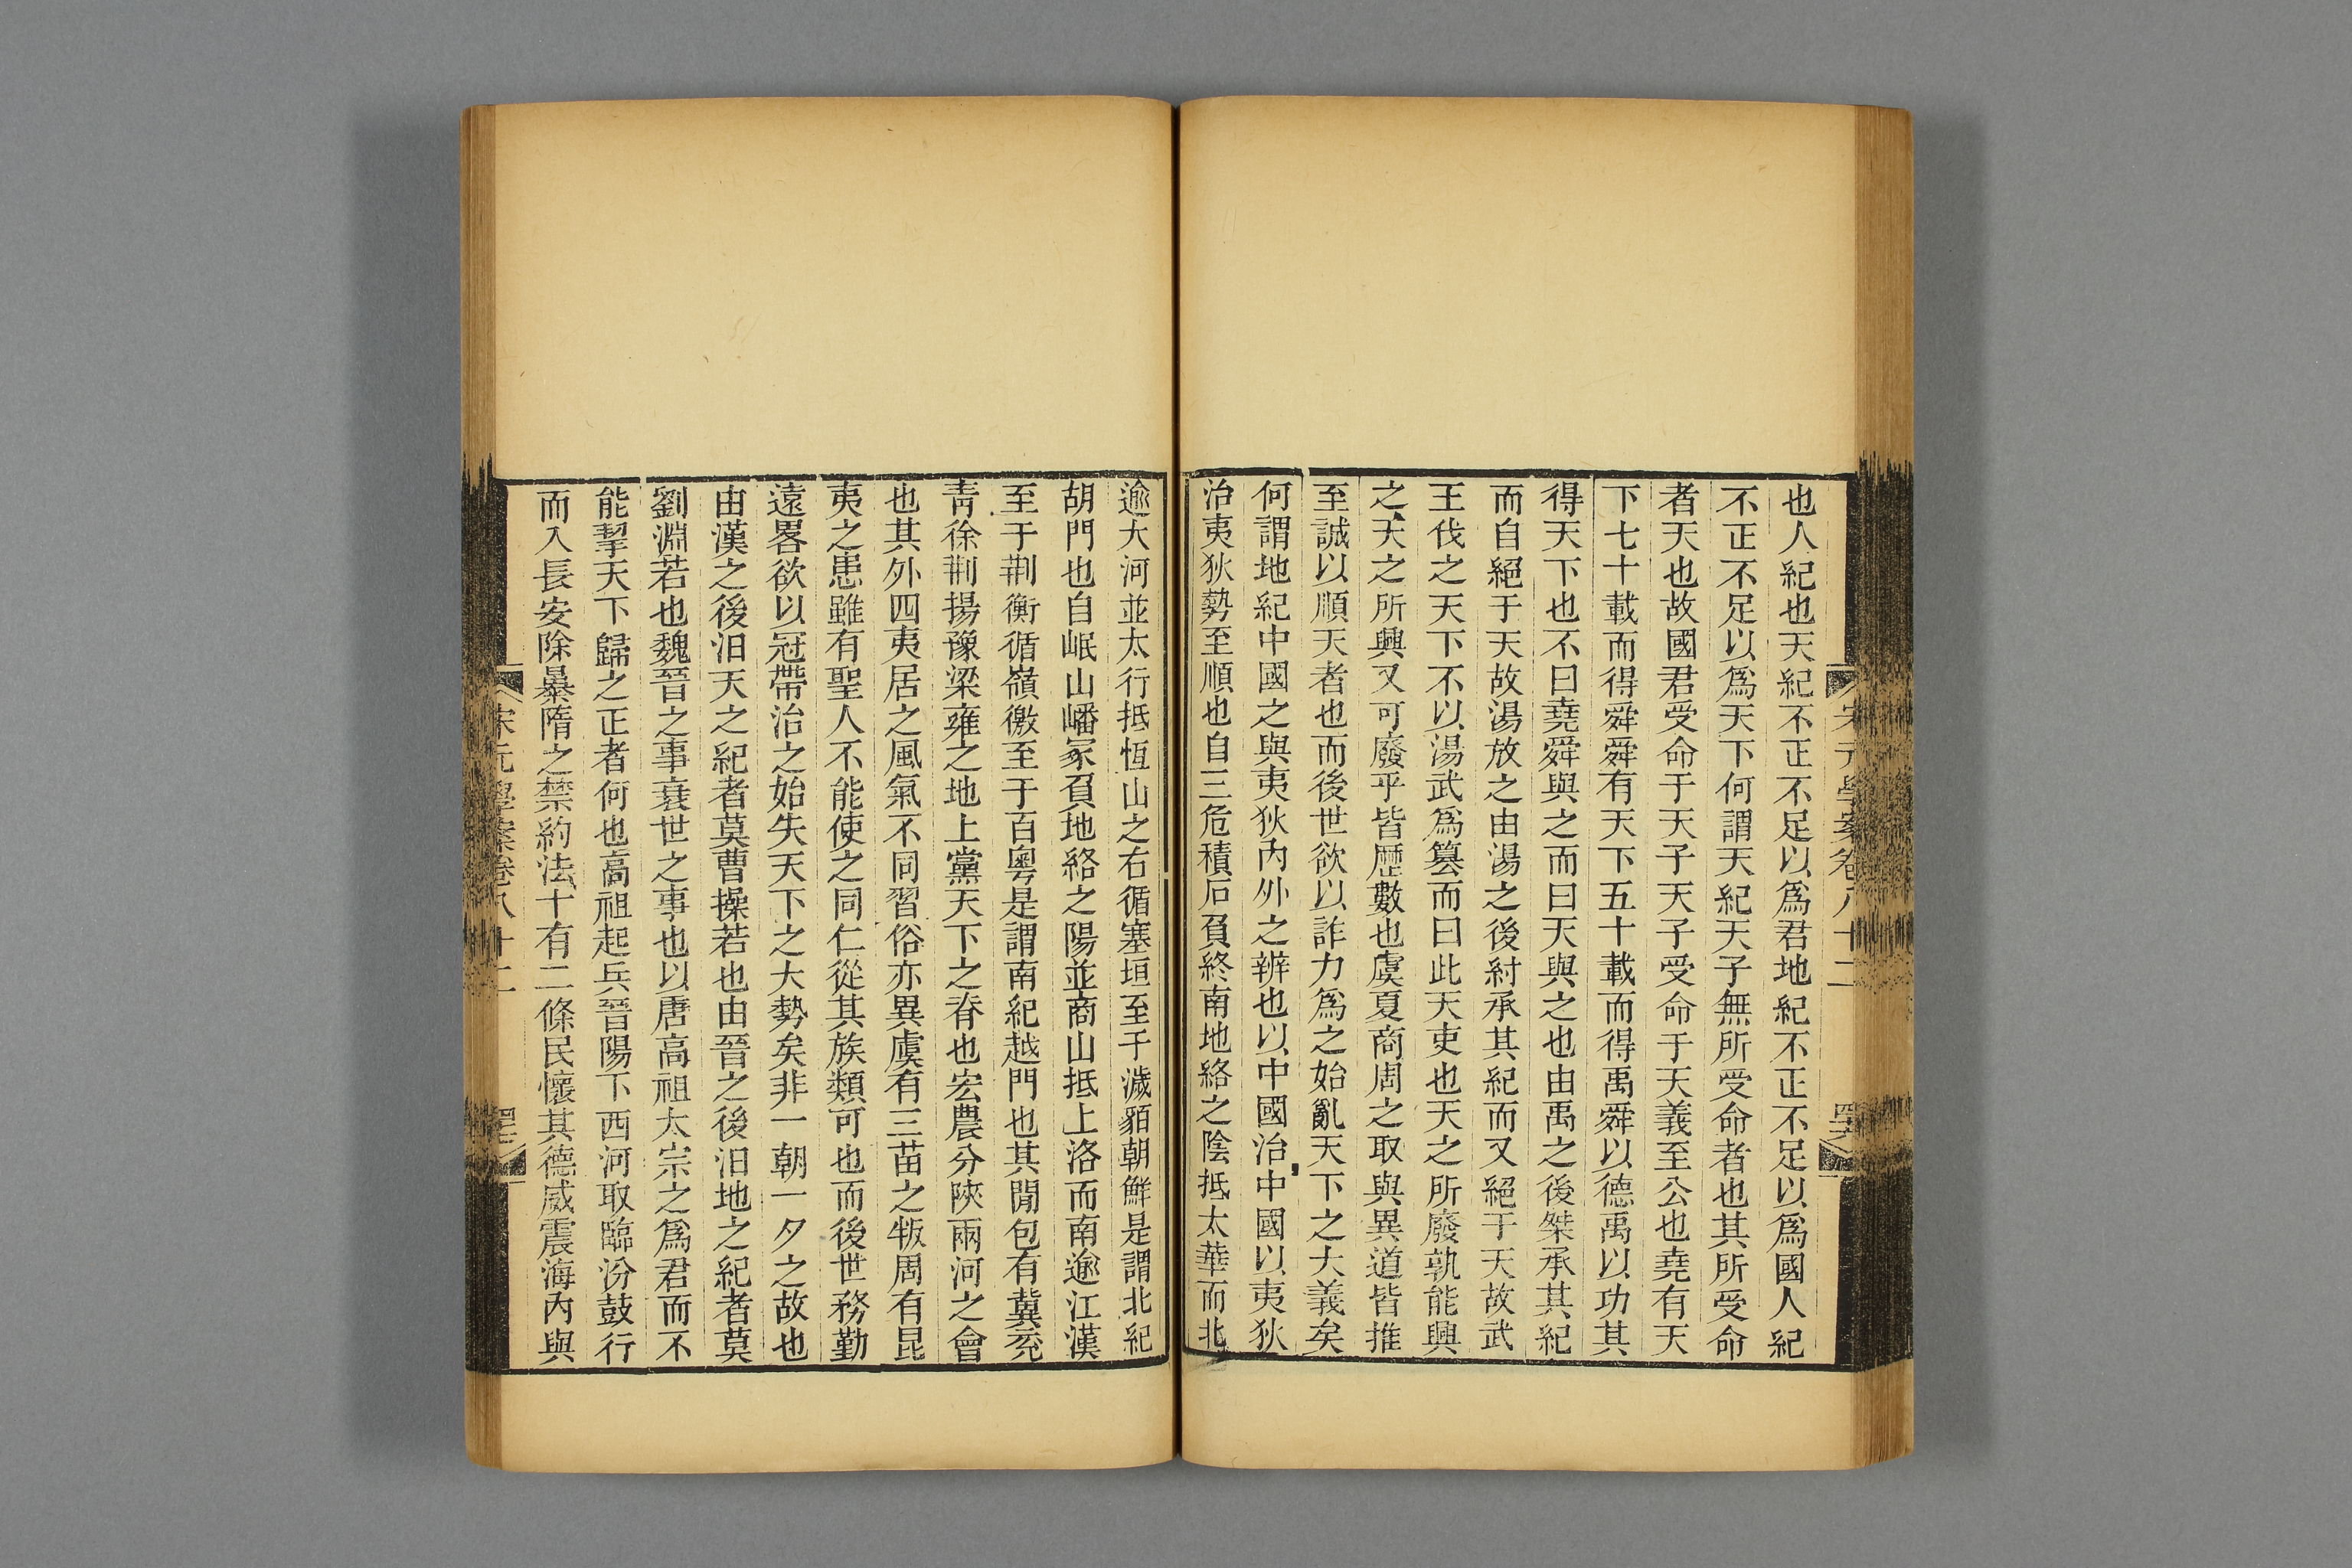 也人紀也天紀不正不足以爲君地紀不正不足以爲國人紀
不正不足以爲天下何謂天紀天子無所受命者也其所受命
者天也故國君受命于天子天子受命于天義至公也堯有天
下七十載而得舜舜有天下五十載而得禹舜以德禹以功其
得天下也不曰堯舜與之而曰天與之也由禹之後桀承其紀
而自絕于天故湯放之由湯之後紂承其紀而又絕于天故武
王伐之天下不以湯武爲篡而曰此天吏也天之所廢孰能興
之天之所興又可廢乎皆歷數也虞夏商周之取與異道皆推
至誠以順天者也而後世欲以詐力爲之始亂天下之大義矣
何謂地紀中國之與夷狄內外之辨也以中國治中國以夷狄
治夷狄勢至順也自三危積石負終南地絡之陰抵太華而北
逾大河並太行抵恆山之右循塞垣至于濊貊朝鮮是謂北紀
胡門也自岷山嶓冢負地絡之陽並商山抵上洛而南逾江漢
至于荆衡循嶺徼至于百粵是謂南紀越門也其閒包有冀兗
靑徐荆揚豫梁雍之地上黨天下之脊也宏農分陝兩河之會
也其外四夷居之風氣不同習俗亦異虞有三苗之叛周有昆
夷之患雖有聖人不能使之同仁從其族類可也而後世務勤
遠畧欲以冠帶治之始失天下之大勢矣非一朝一夕之故也
由漢之後汨天之紀者莫曹操若也由晉之後汨地之紀者莫
劉淵若也魏晉之事衰世之事也以唐高祖太宗之爲君而不
能挈天下歸之正者何也高祖起兵晉陽下西河取臨汾鼓行
而入長安除暴隋之禁約法十有二條民懷其德威震海內與
宋元學案卷八十二